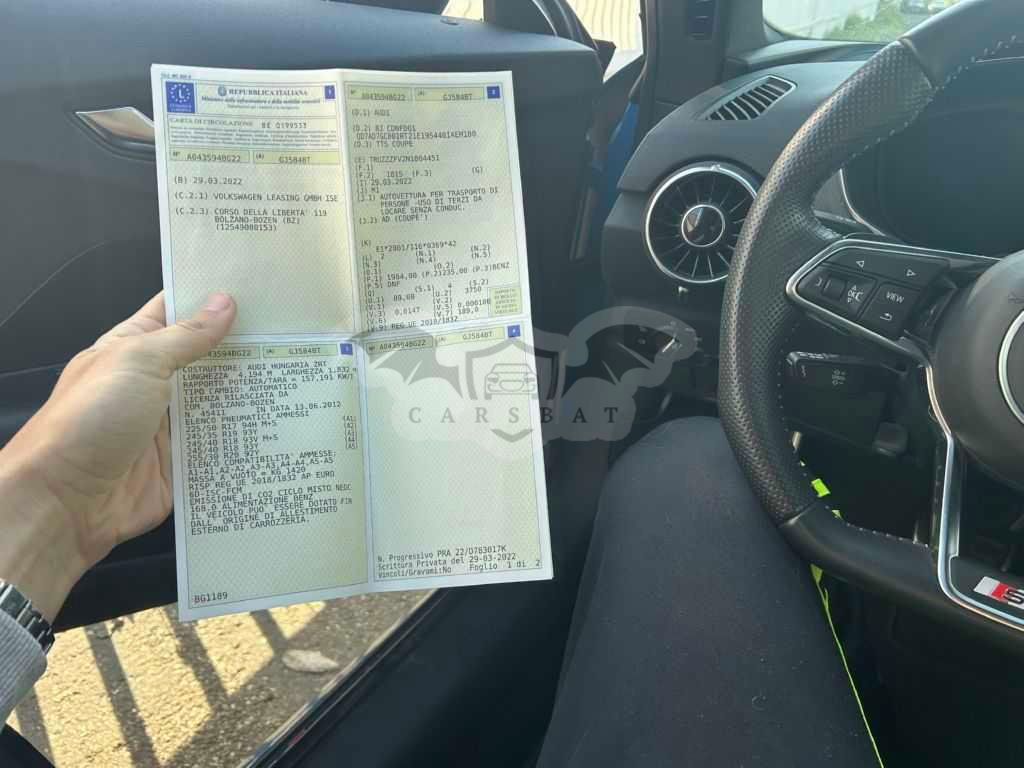 REPUBBLICA ITALIANA
1
CARTA DI CIRCOLAZIONE
N° A043594BG22 (A) GJ584BT
(B) 29.03.2022
(C.2.1) VOLKSWAGEN LEASING GMBH ISE
(C.2.3) CORSO DELLA LIBERTA' 119
BOLZANO-BOZEN (BZ)
(12549080153)
N° A043594BG22 (A) GJ584BT
2
(D.1) AUDI
(D.3) TTS COUPE
(F.1)
(F.2) 1815 (F.3) (G)
(I) 29.03.2022
(J) M1
(J.1) AUTOVETTURA PER TRASPORTO DI
PERSONE -USO DI TERZI DA
LOCARE SENZA CONDUC.
(J.2) AD (COUPE')
(K)
(L) 2 (N.1) (N.2)
(N.3) (N.4) (N.5)
(O.1) (O.2)
(P.1) 1984,00 (P.2)235,00 (P.3)BENZ
(P.5) DNF
(Q) (S.1) 4 (S.2)
(U.1) 89,00 (U.2) 3750
(V.1) (V.2)
(V.3) 0,0147 (V.5) 0,000100
(V.6) (V.7) 189,0
(V.9) REG UE 2018/1832
A043594BG22 (A) GJ584BT
3
COSTRUTTORE: AUDI HUNGARIA ZRT
LUNGHEZZA 4,194 M LARGHEZZA 1,832
RAPPORTO POTENZA/TARA = 157,191 KW/T
TIPO CAMBIO: AUTOMATICO
LICENZA RILASCIATA DA
COM. BOLZANO-BOZEN
N. 45411 IN DATA 13.06.2012
ELENCO PNEUMATICI AMMESSI
225/50 R17 94H M+S (A1)
245/35 R19 93Y (A2)
245/40 R18 93V M+S (A3)
245/40 R18 93Y (A4)
R20 92Y (A5)
ELENCO COMPATIBILITA' AMMESSE:
A1-A1,A2-A2,A3-A3,A4-A4,A5-A5
MASSA A VUOTO = KG.1420
RISP REG UE 2018/1832 AP EURO
6D-ISC-FCM
EMISSIONE DI CO2 CICLO MISTO NEDC
168.0 ALIMENTAZIONE BENZ
IL VEICOLO PUO' ESSERE DOTATO FIN
DALL' ORIGINE DI ALLESTIMENTO
ESTERNO DI CARROZZERIA.
BG1189
N° A043594BG22 (A) GJ584BT
4
N. Progressivo PRA 22/D783017K
Scrittura Privata del 29-03-2022
Vincoli/Gravami:No Foglio 1 di 2
CARSBAT
VIEW
S